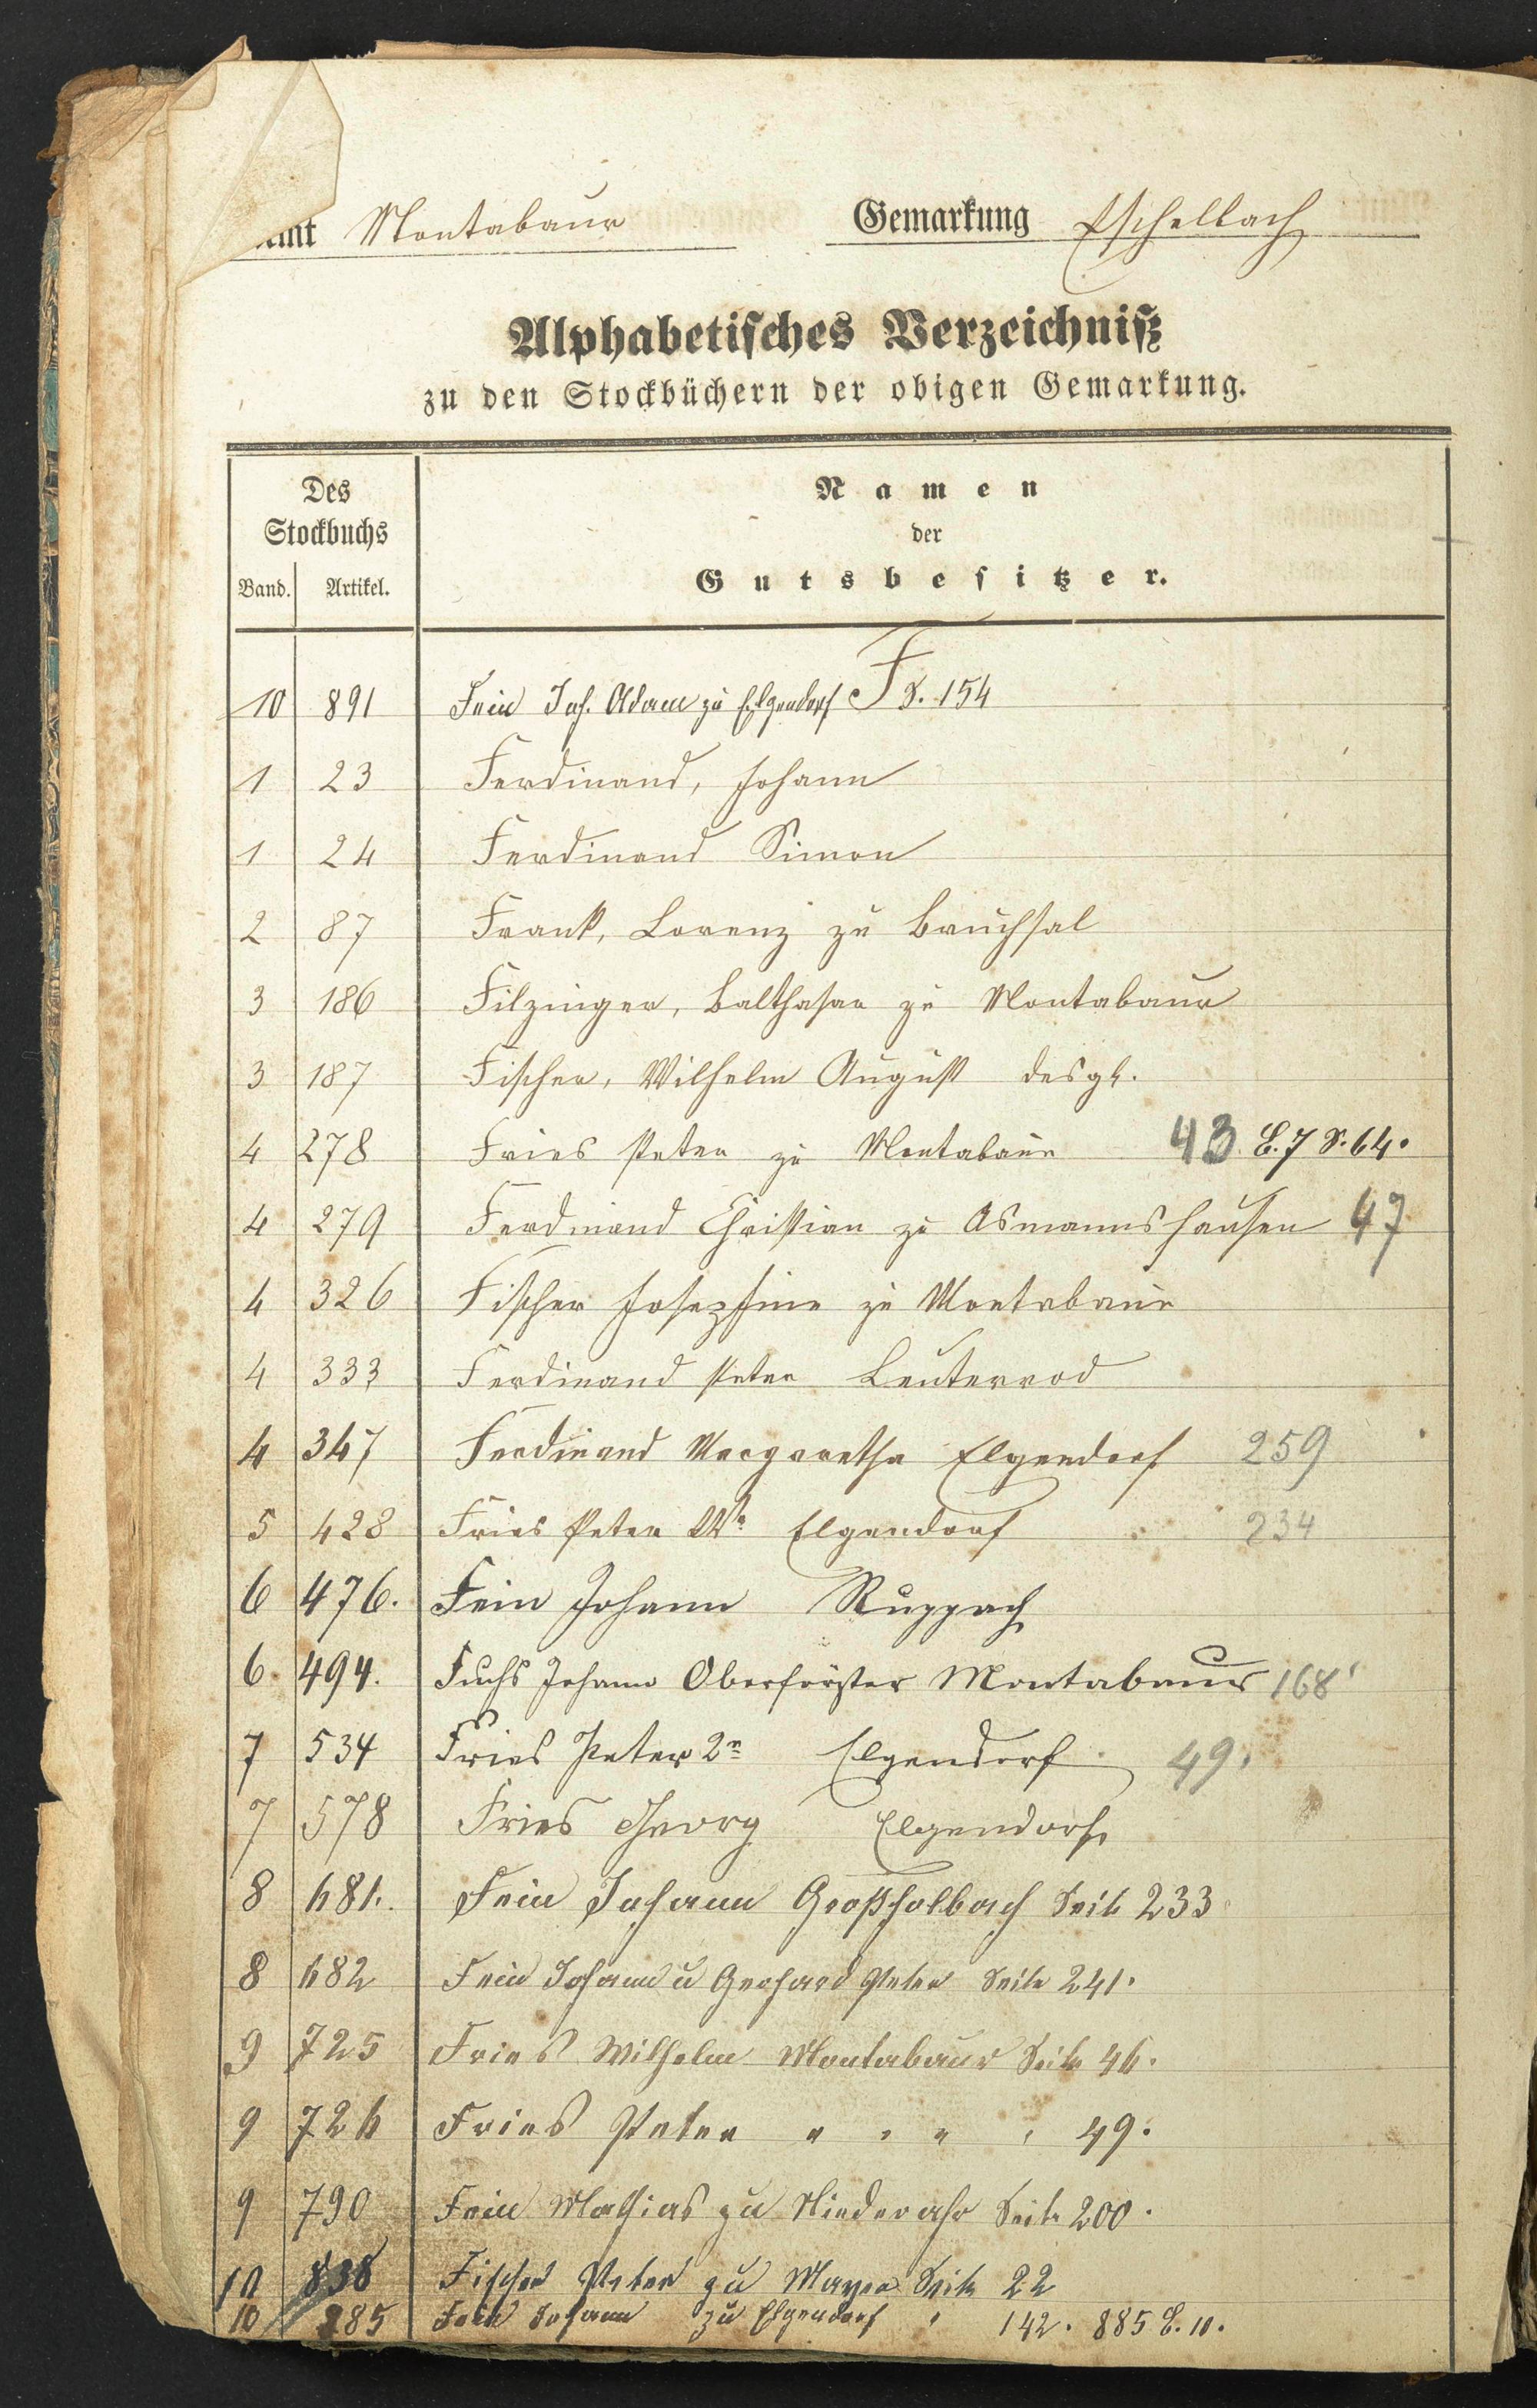 Amt Montabaur Gemarkung Eschelbach
Alphabetisches Verzeichniß
zu den Stockbüchern der obigen Gemarkung.
Des Stockbuchs
Band. Artikel.
Namen
der
Gutsbesitzer.
F
10 891 Fein Joh. Adam zu Elgendorf S. 154
1 23 Ferdinand, Johann
1 24 Ferdinand Simon
2 87 Frank, Lorenz zu Bruchsal
3 186 Filzinger, Balthasar zu Montabaur
3 187 Fischer, Wilhelm August desgl.
4 278 Fries Peter zu Montabaur 43 B. 7 S. 64.
4 279 Ferdinand Christian zu Asmannshausen 47
4 326 Fischer Josephine zu Montabaur
4 333 Ferdinand Peter Leuterrod
4 347 Ferdinand Margaretha Elgendorf 259
5 428 Fries Peter Elgendorf 234
6 476. Fein Johann Ruppach
6 494. Fuchs Johann Oberförster Montabaur 168
7 534 Fries Peter 2r Elgendorf 49.
7 578 Fries Georg Elgendorf
8 681. Fein Johann Großholbach Seite 233
8 682 Fein Johann u Gerhard Peter Seite 241.
9 725 Fries Wilhelm Montabaur Seite 46.
9 726 Fries Peter " " " " 49.
9 790 Fein Mathias zu Niederahr Seite 200.
10 838 Fischer Peter zu Mayen Seite 22
10 885 Fein Johann zu Elgendorf " 142. 885 B. 10.